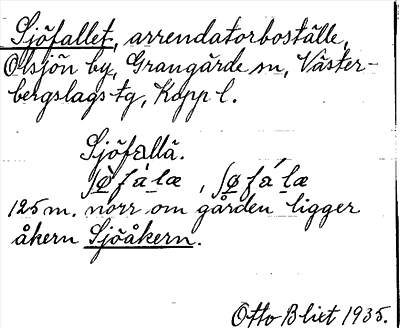 Sjöfallet, arrendatorboställe,
Olsjön by, Grangärde sn, Väster-
bergslags tg, Kopp l.
Sjöfallä.
ʃø̀fàlæ, ʃøfálæ
125 m. norr om gården ligger
åkern Sjöåkern.
Otto Blixt 1935.